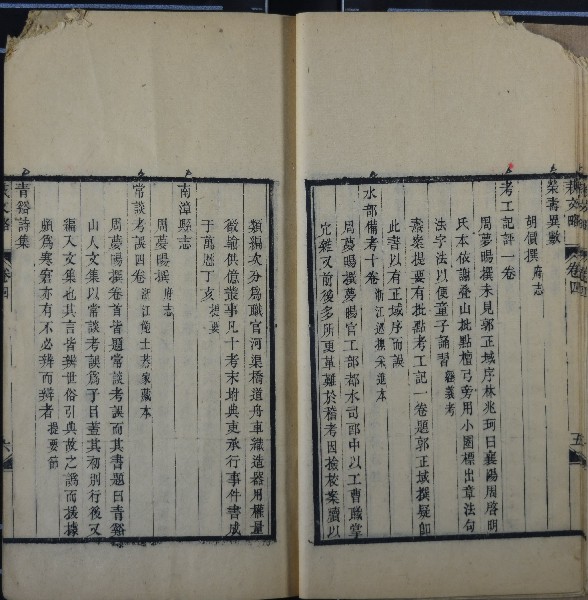 榮壽異數
胡價撰 府志
考工記評一卷
周夢暘撰未見郭正域序林兆珂曰襄陽周啓明
氏本依謝疊山批點檀弓旁用小圈標出章法句
法字法以便童子誦習 經義考
謹案提要有批點考工記一卷題郭正域撰疑卽
此書以有正域序而誤
水部備考十卷 浙江巡撫采進本
周夢暘撰夢暘官工部都水司郎中以工曹職掌
宂雜又前後多所更革難於稽考因檢校案牘以
類編次分爲職官河渠橋道舟車織造器用權量
徵輸供億叢事凡十考末坿典吏承行事件書成
于萬厯丁亥 提要
南漳縣志
周夢暘撰 府志
常談考誤四卷 浙江范懋柱家藏本
周夢暘撰卷首皆題常談考誤而其書題曰青谿
山人文集以常談考誤爲子目蓋其初別行後又
編入文集也其言皆辨世俗引典故之譌而援據
頗爲寒窘亦有不必辨而辨者 提要節
青谿詩集
藝文略 卷四 六